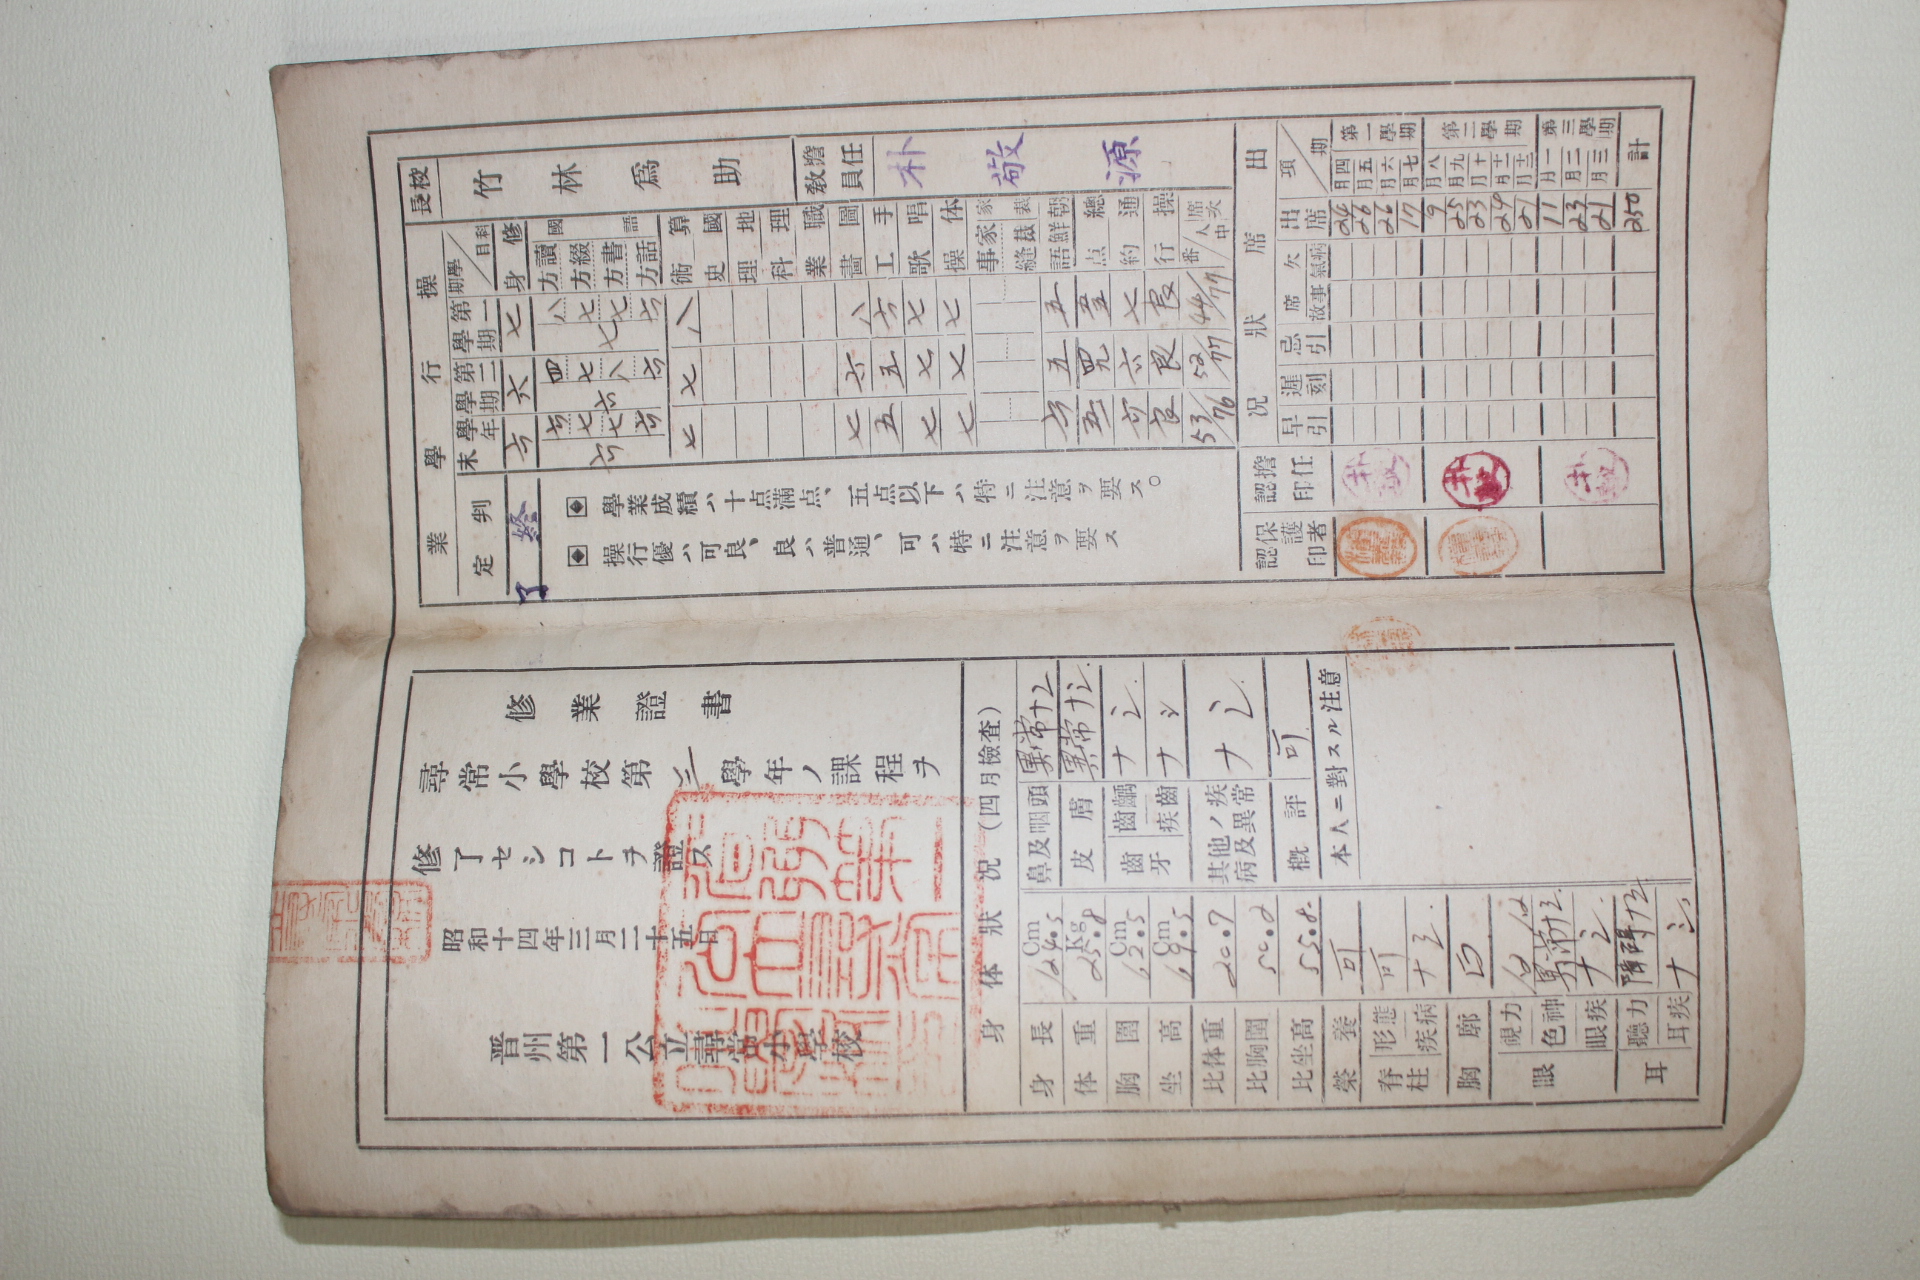 校長 竹林爲助
擔任教員 朴敬源
操行學業
學期／科目
第一學期
第二學期
學年末
判定
終了
修身 七 六 六
國語
讀方 八 四 六
綴方 七 七 七
書方 七 八 七
話方 六 六 六
七 六 六
算術 八 七 七
國史
地理
理科
職業
圖畫 八 六 七
手工 六 五 五
唱歌 七 七 七
体操 七 七 七
家事
裁縫
朝鮮語 五 五 六
總点
通約 七 六 六
操行 良 良 良
席次 番／人中 44/77 52/77 53/76
學業成績ハ十点滿点、五点以下ハ特ニ注意ヲ要ス。
操行優ハ可良、良ハ普通、可ハ特ニ注意ヲ要ス
出席狀況
項／期
出席
欠席 病氣 事故
忌引
遲刻
早引
擔任認印
保護者認印
第一學期
四月 24
五月 26
六月 26
七月 17
第二學期
八月 9
九月 25
十月 23
十一月 24
十二月 21
第三學期
一月 11
二月 23
三月 21
計 250
修業證書
尋常小學校第三學年ノ課程ヲ
修了セシコトヲ證ス
昭和十四年三月二十五日
晋州第一公立尋常小學校
身体狀况(四月檢査)
身長 124.5 Cm
体重 25.8 Kg
胸圍 62.5 Cm
坐高 69.5 Cm
比体重 20.7
比胸圍 50.2
比坐高 55.8
榮養 可
脊柱
形態 可
疾病 ナシ
胸廓
眼
視力
色神 異常ナシ
眼疾 ナシ
耳
聽力 障碍ナシ
耳疾 ナシ
鼻及咽頭 異常ナシ
皮膚 異常ナシ
齒牙
齲齒 ナシ
齒疾 ナシ
其他ノ疾病及異常 ナシ
概評 可
本人ニ對スル注意